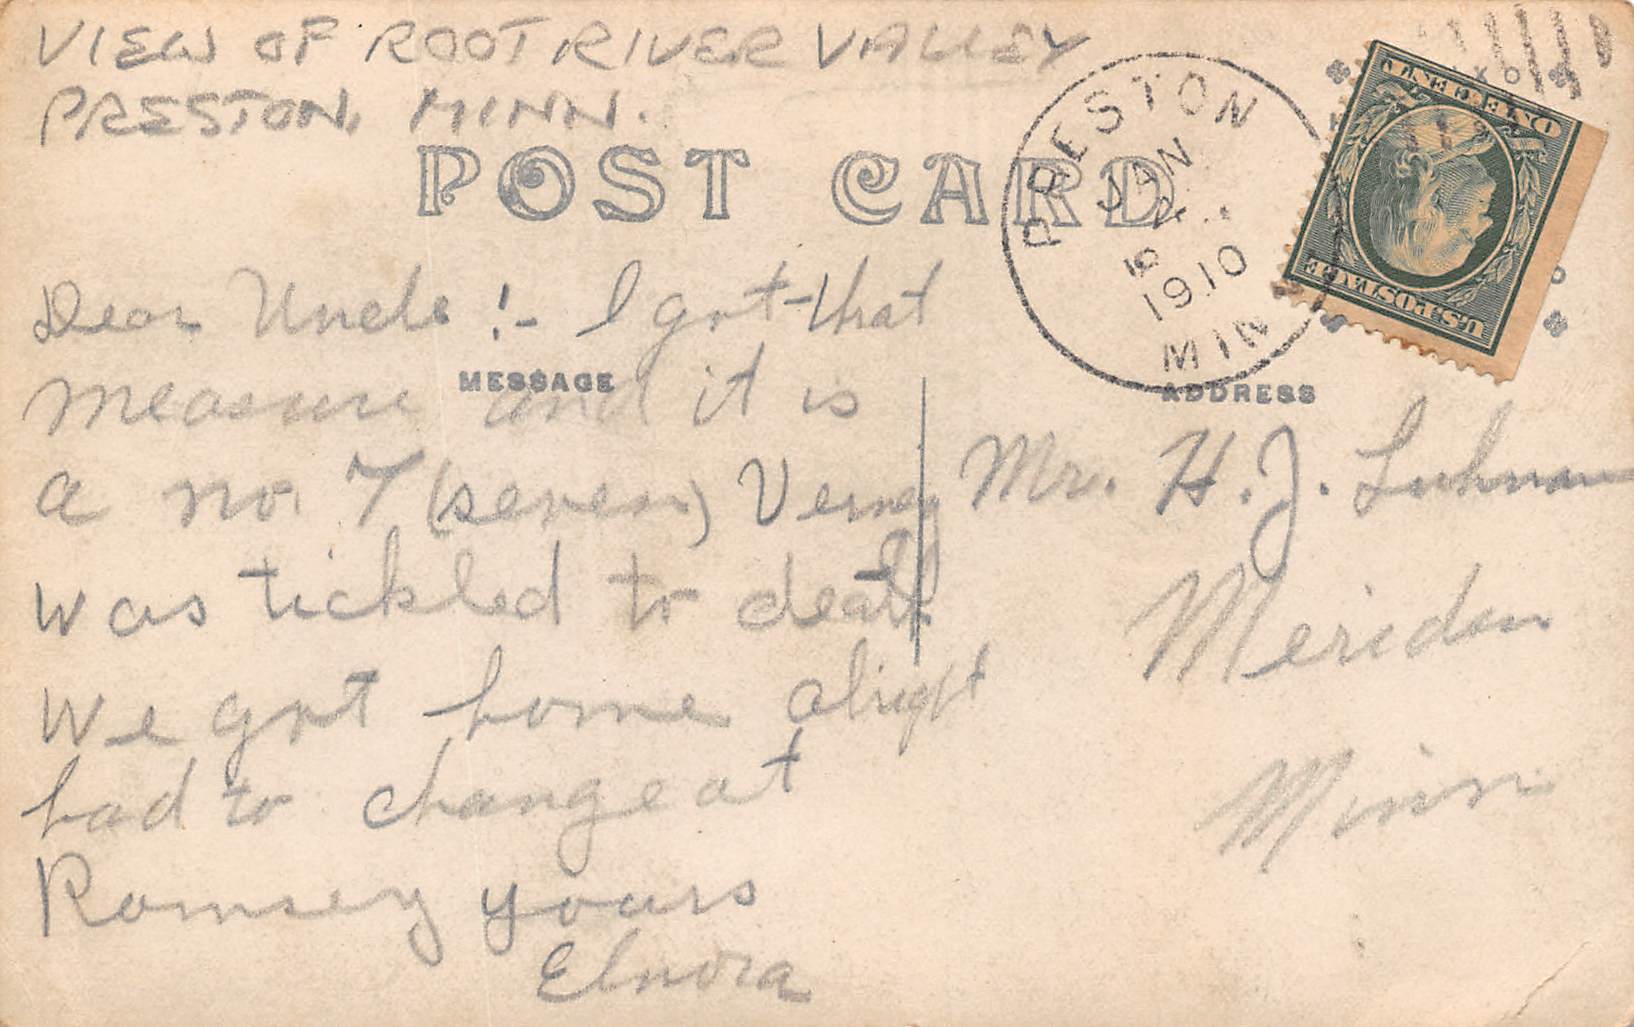 VIEW OF ROOT RIVER VALLEY
PRESTON, MINN.
POST CARD
PRESTON
JAN
5
1910
MIN
U.S. POSTAGE
ONE CENT
MESSAGE
ADDRESS
Dear Uncle !- I got that
measure and it is
a no. 7 (seven) Verney
was tickled to death
We got home alright
had to change at
Ramsey yours
Elnora
Mr. H. J. Luhman
Meriden
Minn